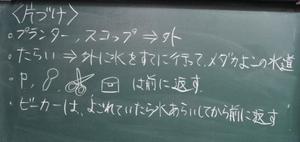 〈片づけ〉
・プランター, スコップ ⇒ 外
・たらい ⇒ 外に水をすてに行って, メダカよこの水道
・P, は前に返す.
・ビーカーは, よごれていたら水あらいしてから前に返す